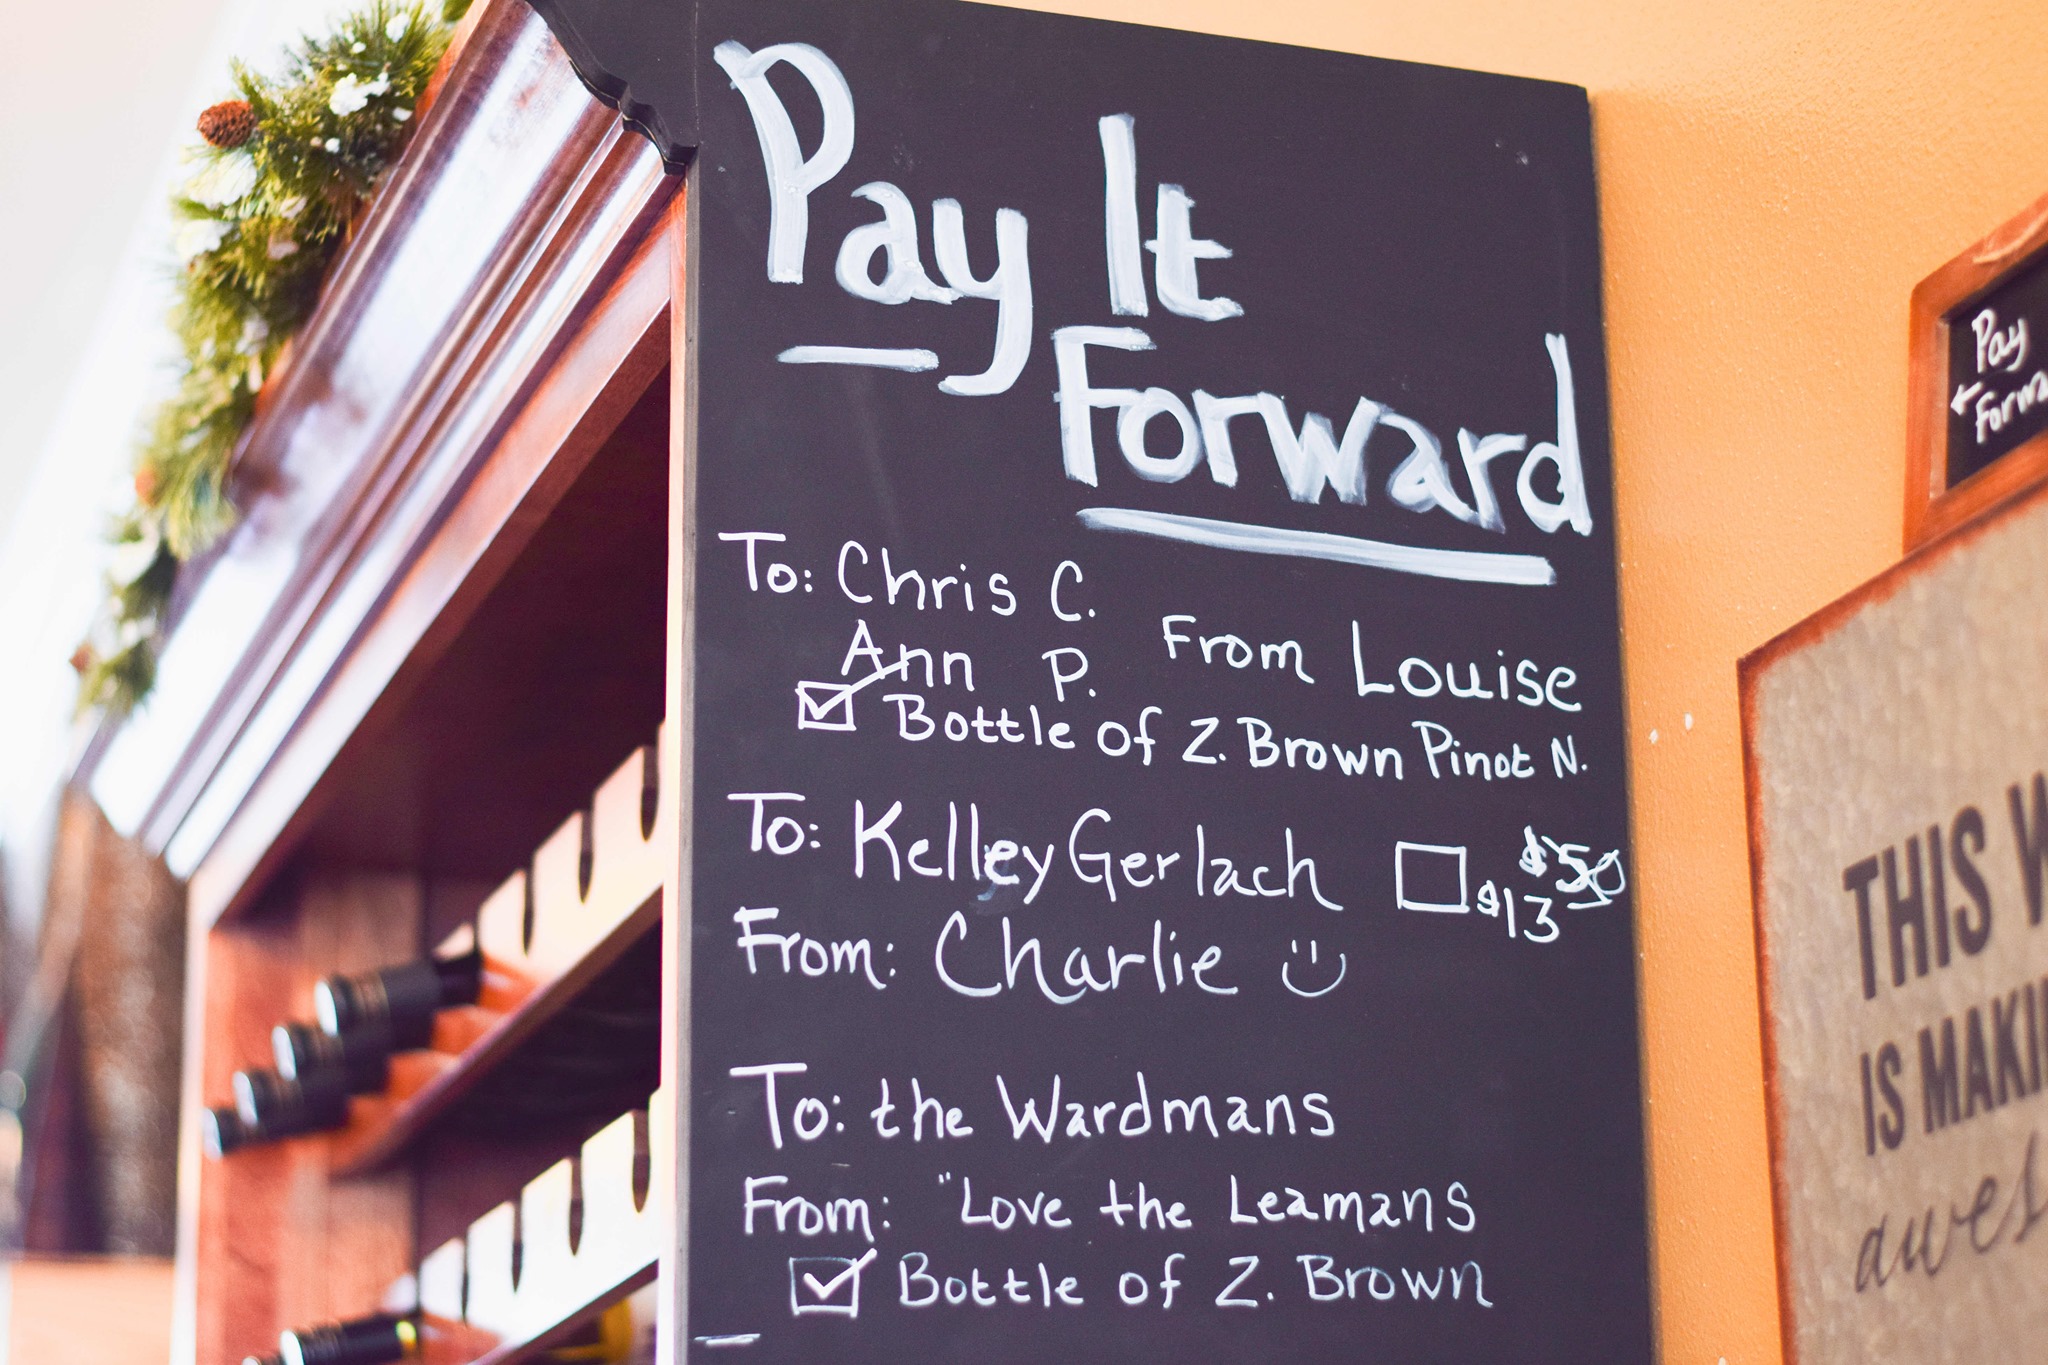 Pay It
Forward
To: Chris C.
Ann P. From Louise
Bottle of Z. Brown Pinot N.
To: Kelley Gerlach $50
$13
From: Charlie
To: the Wardmans
From: "Love the Leamans
Bottle of Z. Brown
Pay
← Forwa
THIS W
IS MAKI
awes